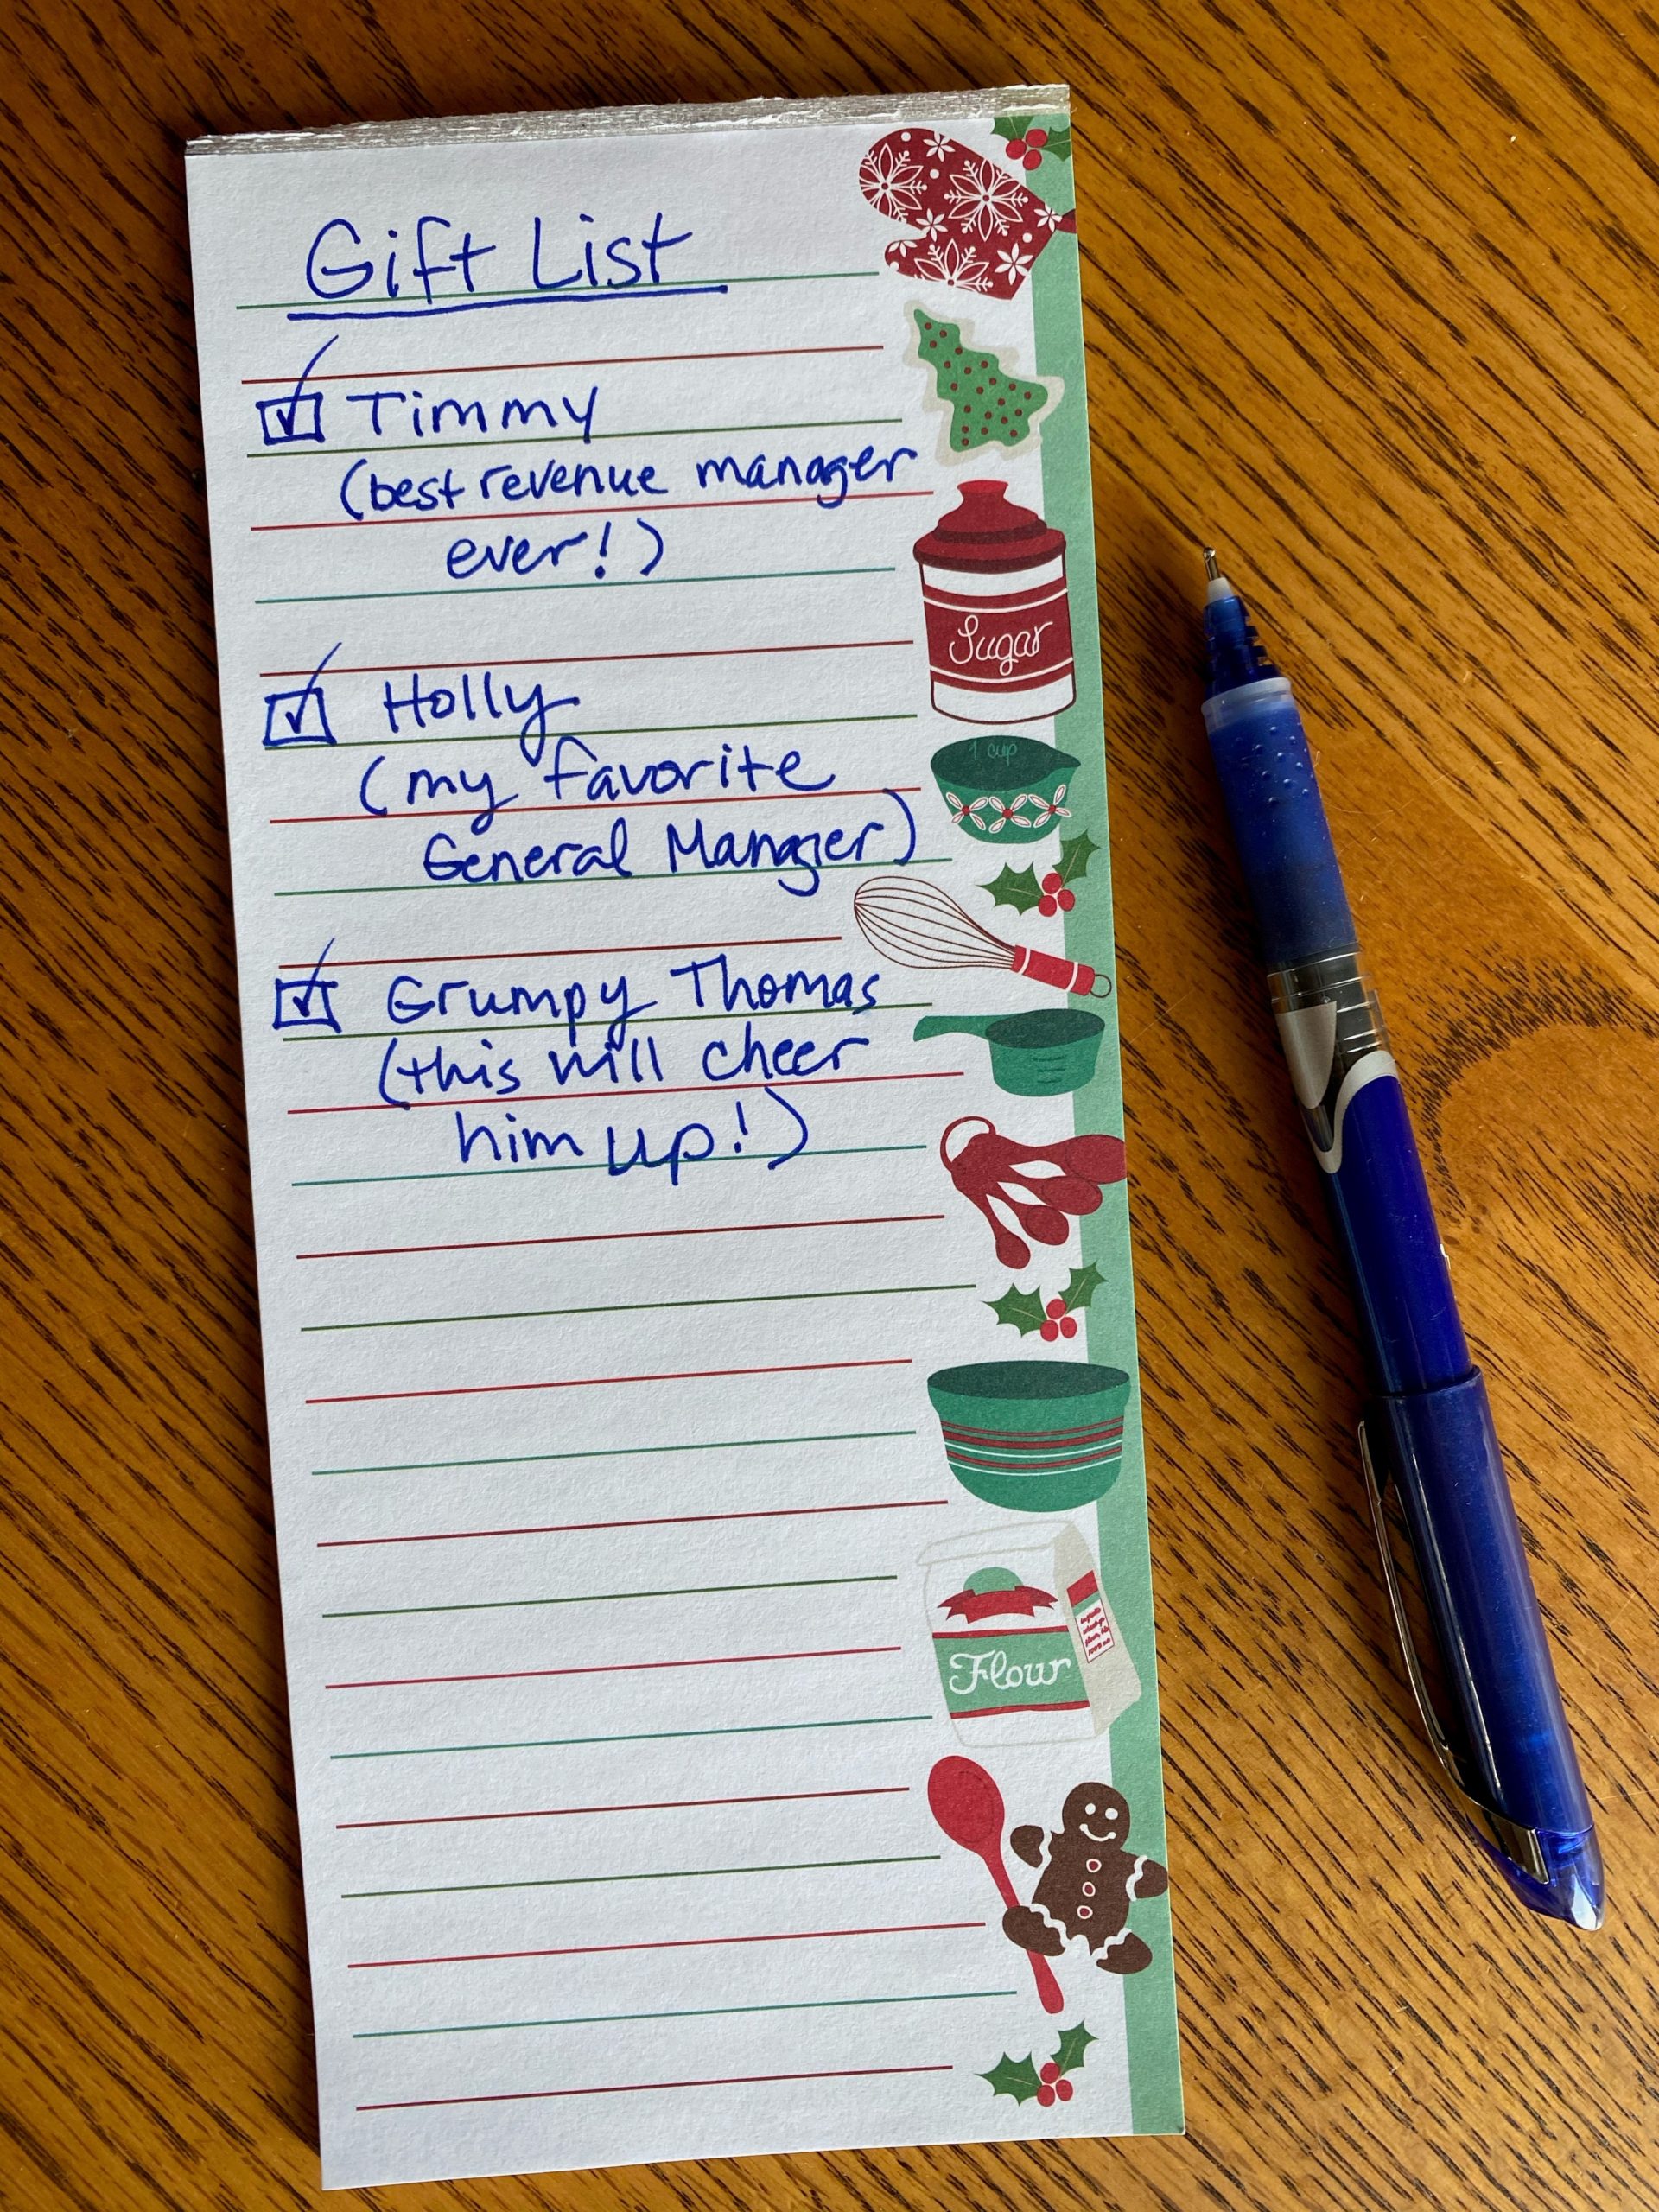 Gift List
Timmy
(best revenue manager
ever!)
Sugar
Holly
1 cup
(my favorite
General Manager)
Grumpy Thomas
(this will cheer
him up!)
Flour